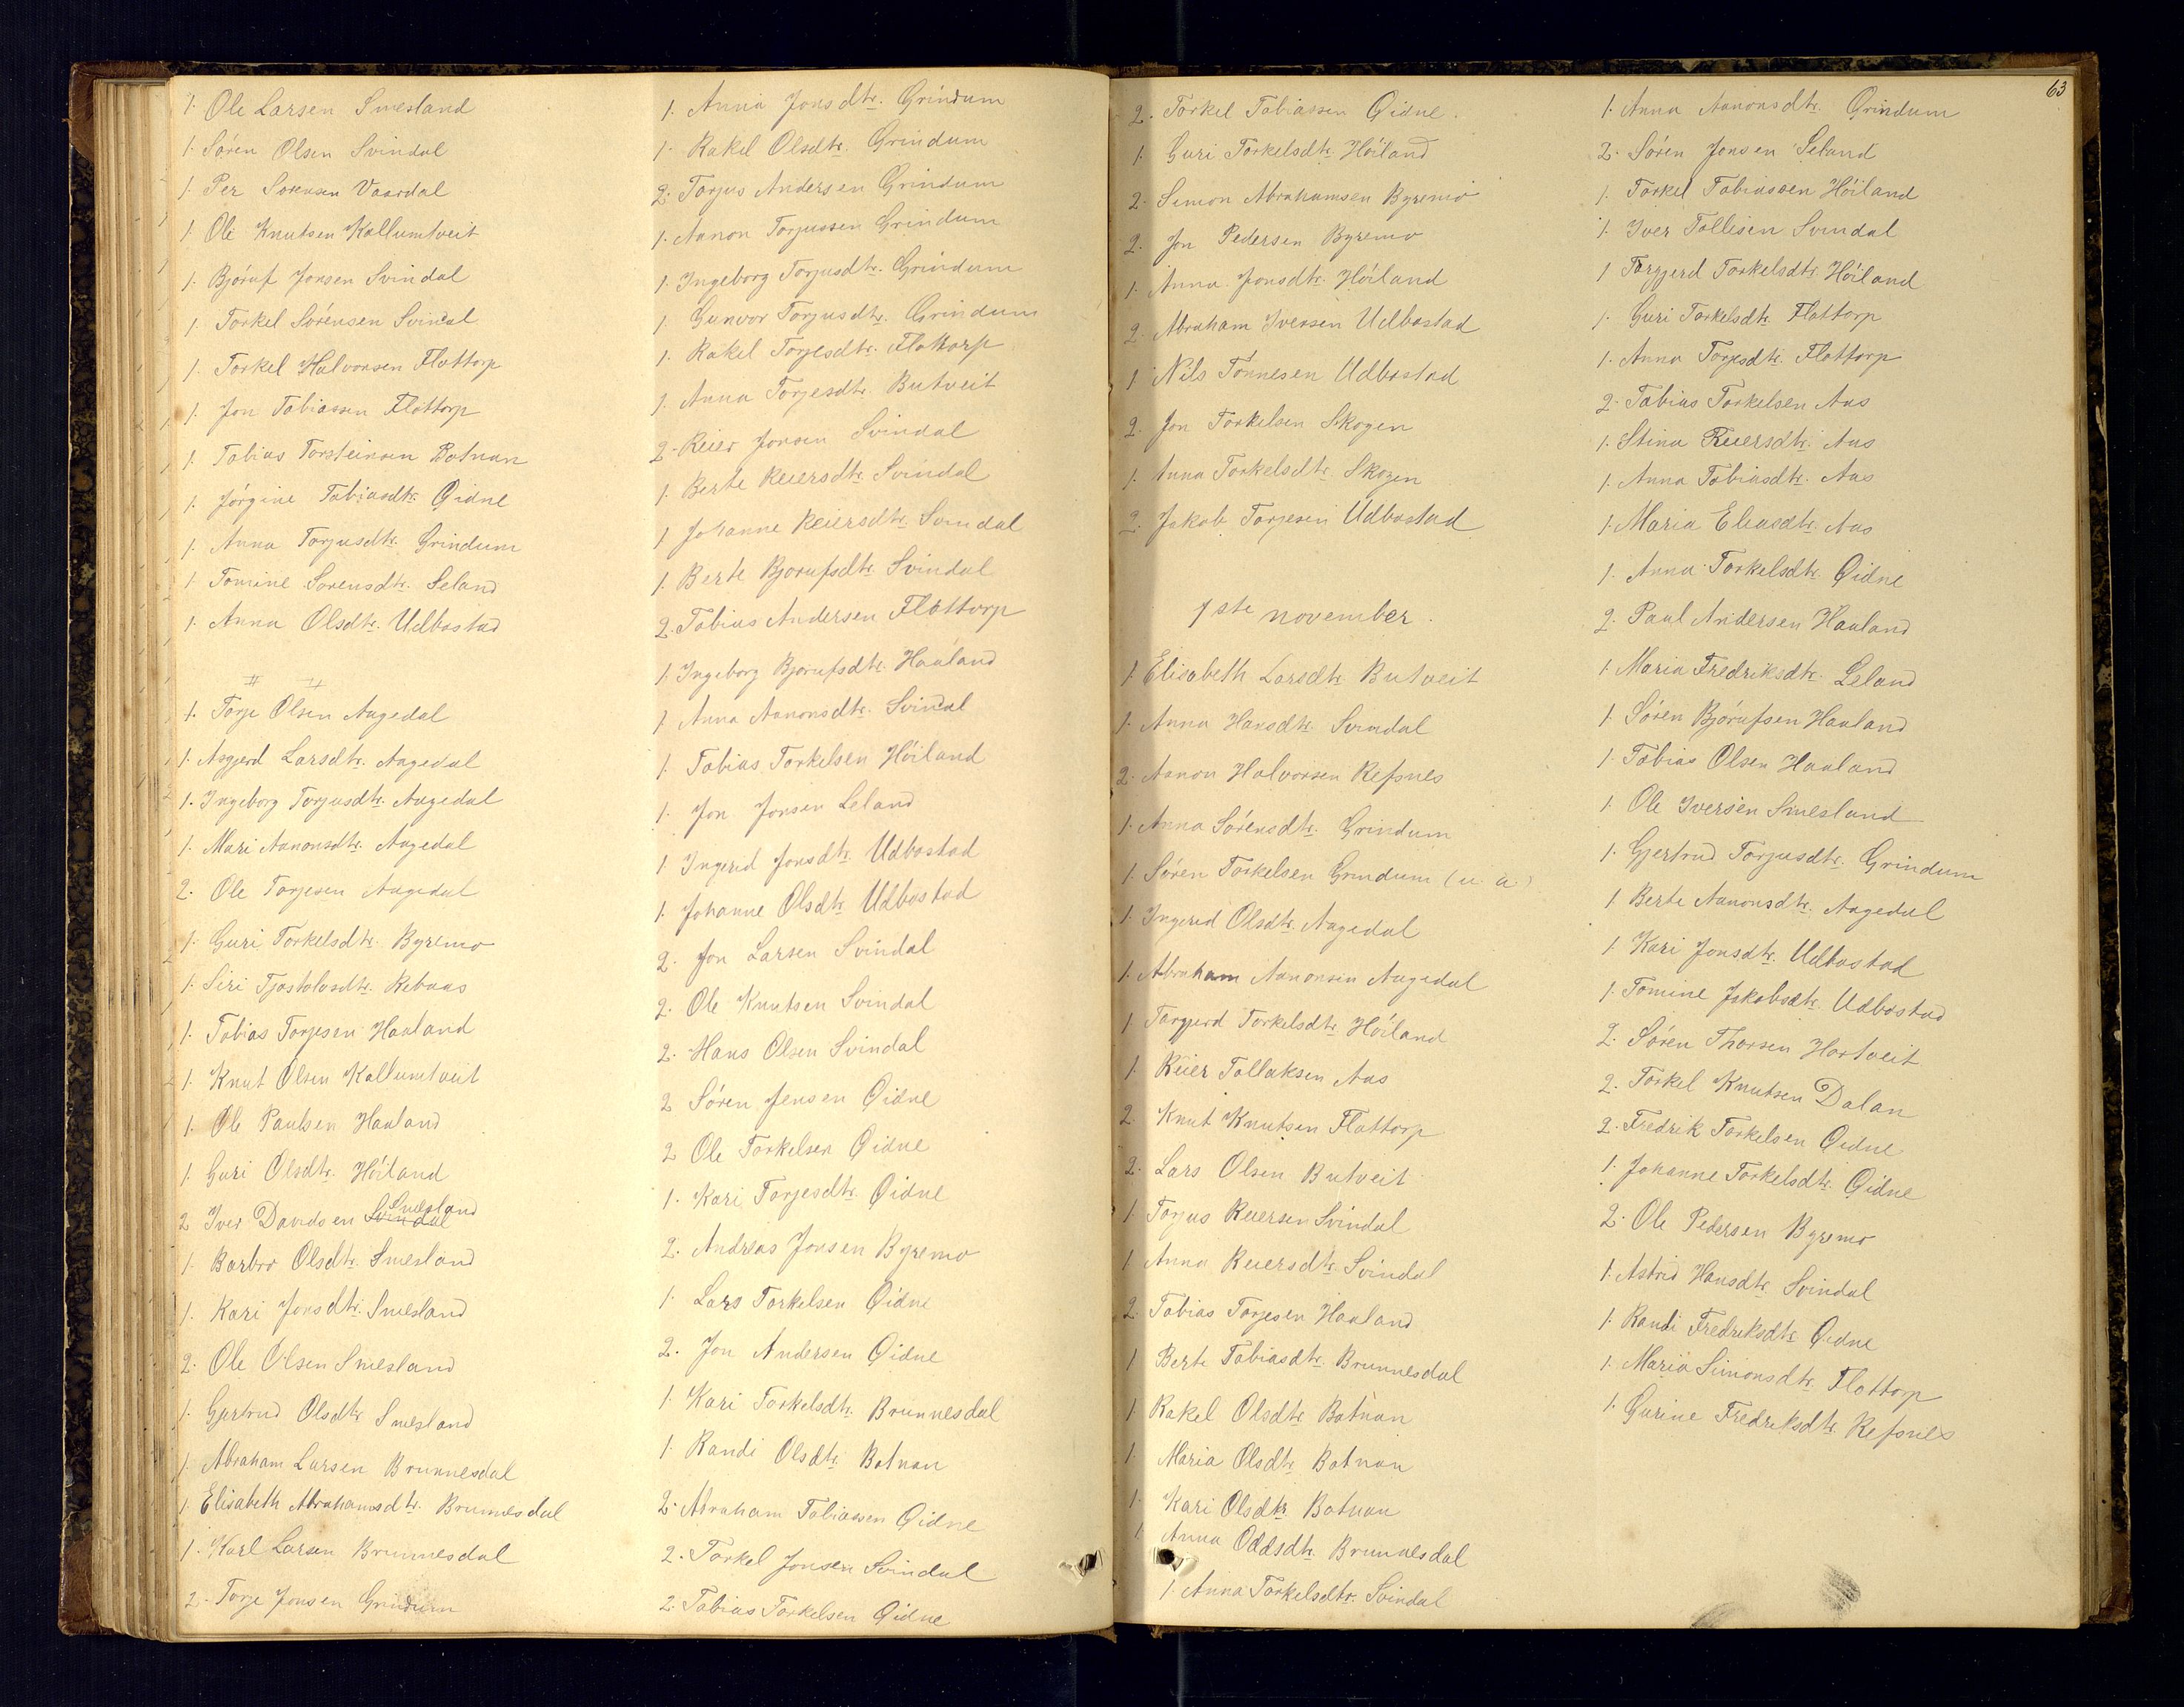 1. Ole Larsen Smesland
1. Sören Olsen Svindal
1. Per Sorensen Vaardal
1. Ole Knutsen Kallumtveit
1. Björuf Jonsen Svindal
1. Torkel Sörensen Svindal
1. Torkel Halvorsen Flottorp
1. Jon Tobiassen Flottorp
1. Tobias Torsteinsen Botnan
1. Jörgine Tobiasdtr. Øidne
1. Anna Torjusdtr. Grindum
1. Tomine Sorensdtr. Seland
1. Anna Olsdtr. Udbostad
1. Torje Olsen Aagedal
1. Asgjerd Larsdtr. Aagedal
1. Ingeborg Torjusdtr. Aagedal
1. Mari Aanonsdtr. Aagedal
2. Ole Torjesen Aagedal
1. Guri Torkelsdtr. Byremo
1. Siri Tjostolvsdtr. Rebaas
1. Tobias Torjesen Haaland
1. Knut Olsen Kallumtveit
1. Ole Paulsen Haaland
1. Guri Olsdtr. Höiland
2 Iver Davidsen Svindal Smesland
1. Barbro Olsdtr. Smesland
1. Kari Jonsdtr. Smesland
2. Ole Olsen Smesland
1. Gjertrud Olsdtr Smesland
1. Abraham Larsen Brunnesdal
1. Elisabeth Abrahamsdtr. Brunnesdal
1. Karl Larsen Brunnesdal
2. Torje Jonsen Grindum
1. Anna Jonsdtr. Grindum
1. Rakel Olsdtr. Grindum
2. Torjus Andersen Grindum
1. Aanon Torjussen Grindum
1. Ingeborg Torjusdtr. Grindum
1 Gunvor Torjusdtr. Grindum
1. Rakel Torjesdtr. Flottorp
1. Anna Torjesdtr. Butveit
2. Reier Jonsen Svindal
1. Berte Reiersdtr. Svindal
1 Johanne Reiersdtr. Svindal
1. Berte Bjorufsdtr. Svindal
2. Tobias Andersen Flottorp
1. Ingeborg Bjorufsdtr. Haaland
1 Anna Aanonsdtr. Svindal
1. Tobias Torkelsen Höiland
1. Jon Jonsen Leland
1 Ingerid Jonsdtr. Udbostad
1. Johanne Olsdtr Udbostad
2. Jon Larsen Svindal
2. Ole Knutsen Svindal
2. Hans Olsen Svindal
2 Sören Jensen Øidne
2 Ole Torkelsen Øidne
1. Kari Torjesdtr. Øidne
2. Andreas Jonsen Byremo
1. Lars Torkelsen Øidne
2. Jon Andersen Øidne
1. Kari Torkelsdtr. Brunnesdal
1. Randi Olsdtr. Botnan
2. Abraham Tobiassen Øidne
2. Torkel Jonsen Svindal
2. Tobias Torkelsen Øidne
63
2. Torkel Tobiassen Øidne.
1. Guri Torkelsdtr. Höiland
2. Simon Abrahamsen Byremo
2. Jon Pedersen Byremo
1. Anna Jonsdtr. Höiland
2. Abraham Iversen Udbostad
1 Nils Tönnesen Udbostad
2. Jon Torkelsen Skogen
1. Anna Torkelsdtr. Skogen
2. Jakob Torjesen Udbostad
1ste november.
1 Elisabeth Larsdtr. Butveit
1. Anna Hansdtr. Svindal
2. Aanon Halvorsen Refsnes
1. Anna Sörensdtr. Grindum
1. Sören Torkelsen Grindum (u. a.)
1. Ingerid Olsdtr. Aagedal
1. Abraham Aanonsen Aagedal
1 Torgjerd Torkelsdtr Höiland
1. Reier Tollaksen Aas
2. Knut Knutsen Flottorp
2. Lars Olsen Butveit
1 Torjus Reiersen Svindal
1 Anna Reiersdtr. Svindal
2. Tobias Torjesen Haaland
1 Berte Tobiasdtr. Brunnesdal
1 Rakel Olsdtr. Botnan
1. Maria Olsdtr. Botnan
1. Kari Olsdtr. Botnan
1 Anna Oddsdtr. Brunnesdal
1. Anna Torkelsdtr. Svindal
1. Anna Aanonsdtr. Grindum
2. Sören Jonsen Seland
1. Torkel Tobiassen Höiland
1. Iver Tollisen Svindal
1 Torgjerd Torkelsdtr. Höiland
1. Guri Torkelsdtr. Flottorp
1. Anna Torjesdtr. Flottorp
2. Tobias Torkelsen Aas
1. Stina Reiersdtr. Aas
1. Anna Tobiasdtr. Aas
1. Maria Eliasdtr. Aas
1. Anna Torkelsdtr. Øidne
2. Paul Andersen Haaland
1. Maria Fredriksdtr. Leland
1. Sören Bjórufsen Haaland
1. Tobias Olsen Haaland
1. Ole Iversen Smesland
1. Gjertrud Torjusdtr. Grindum
1 Berte Aanonsdtr. Aagedal
1 Kari Jonsdtr. Udbostad
1. Tomine Jakobsdtr. Udbostad
2. Sören Thorsen Hortveit
2. Torkel Knutsen Dalan
2. Fredrik Torkelsen Øidne
1. Johanne Torkelsdtr. Øidne
2. Ole Pedersen Byremo
1. Astrid Hansdtr. Svindal
1. Randi Fredriksdtr. Øidne
1. Maria Simonsdtr. Flottorp
1. Gurine Fredriksdtr. Refsnes